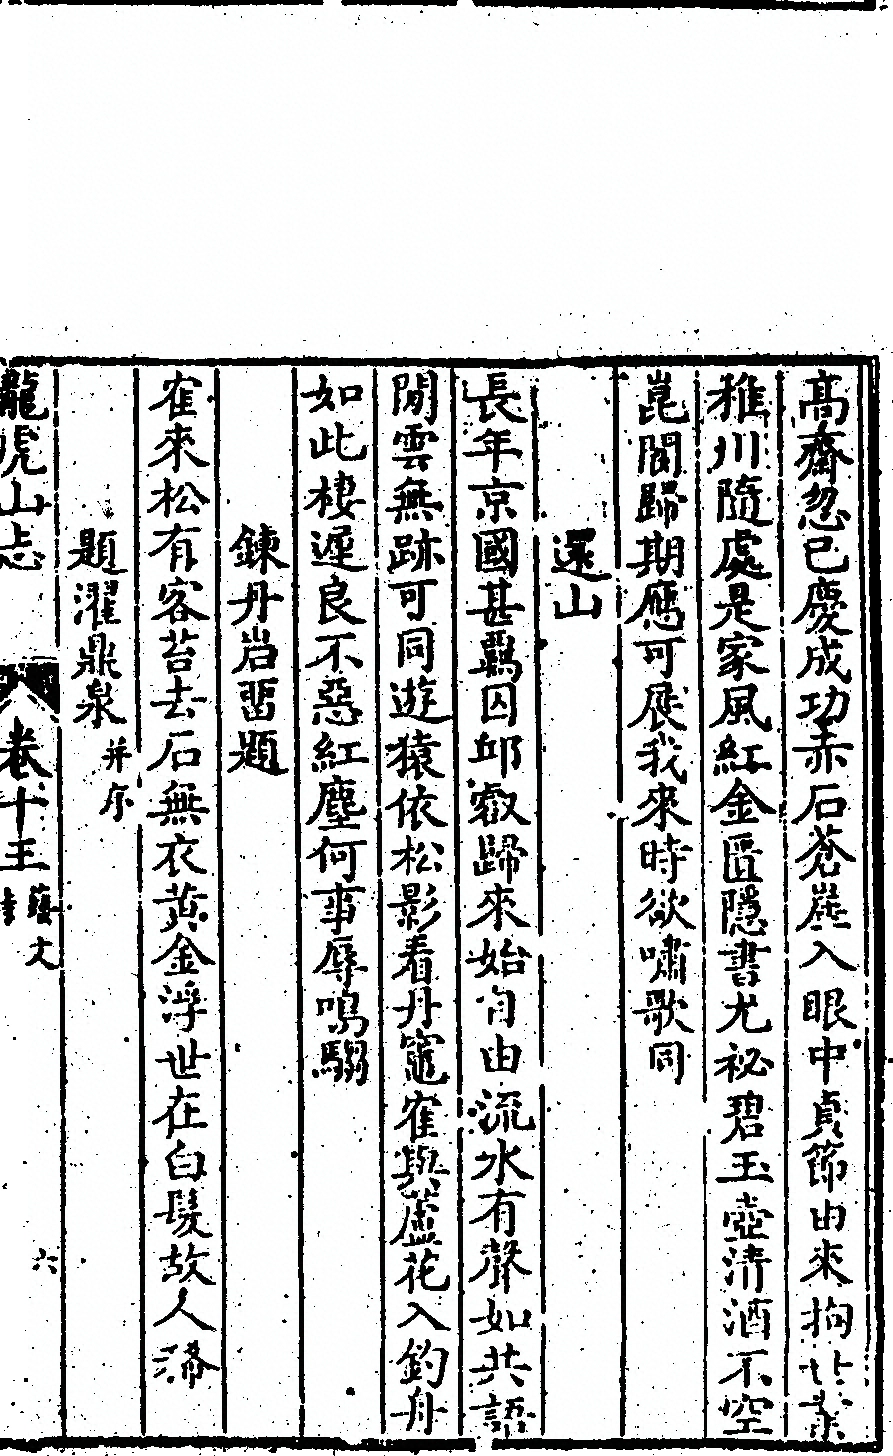 高齋忽已慶成功赤石蒼崖入眼中真節由來拘世業
稚川隨處是家風紅金匱隱書尤祕碧玉壺清酒不空
崑閬歸期應可展我來時欲嘯歌同
還山
長年京國甚羈囚邱叡歸來始自由流水有聲如共語
閒雲無跡可同遊猿依松影看丹竈隺與蘆花入釣舟
如此棲遲良不惡紅塵何事辱鳴騶
鍊丹岩畱題
隺來松有客苔去石無衣黃金浮世在白髮故人稀
題濯鼎泉 并序
龍虎山志 卷十五 藝文 六